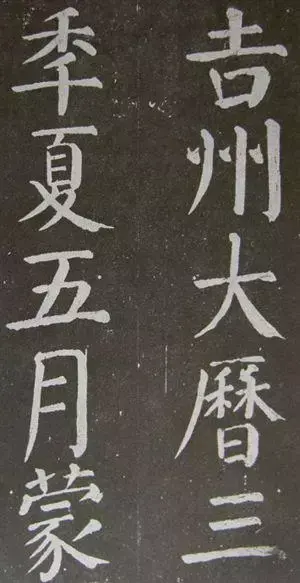 吉州大曆三
秊夏五月蒙